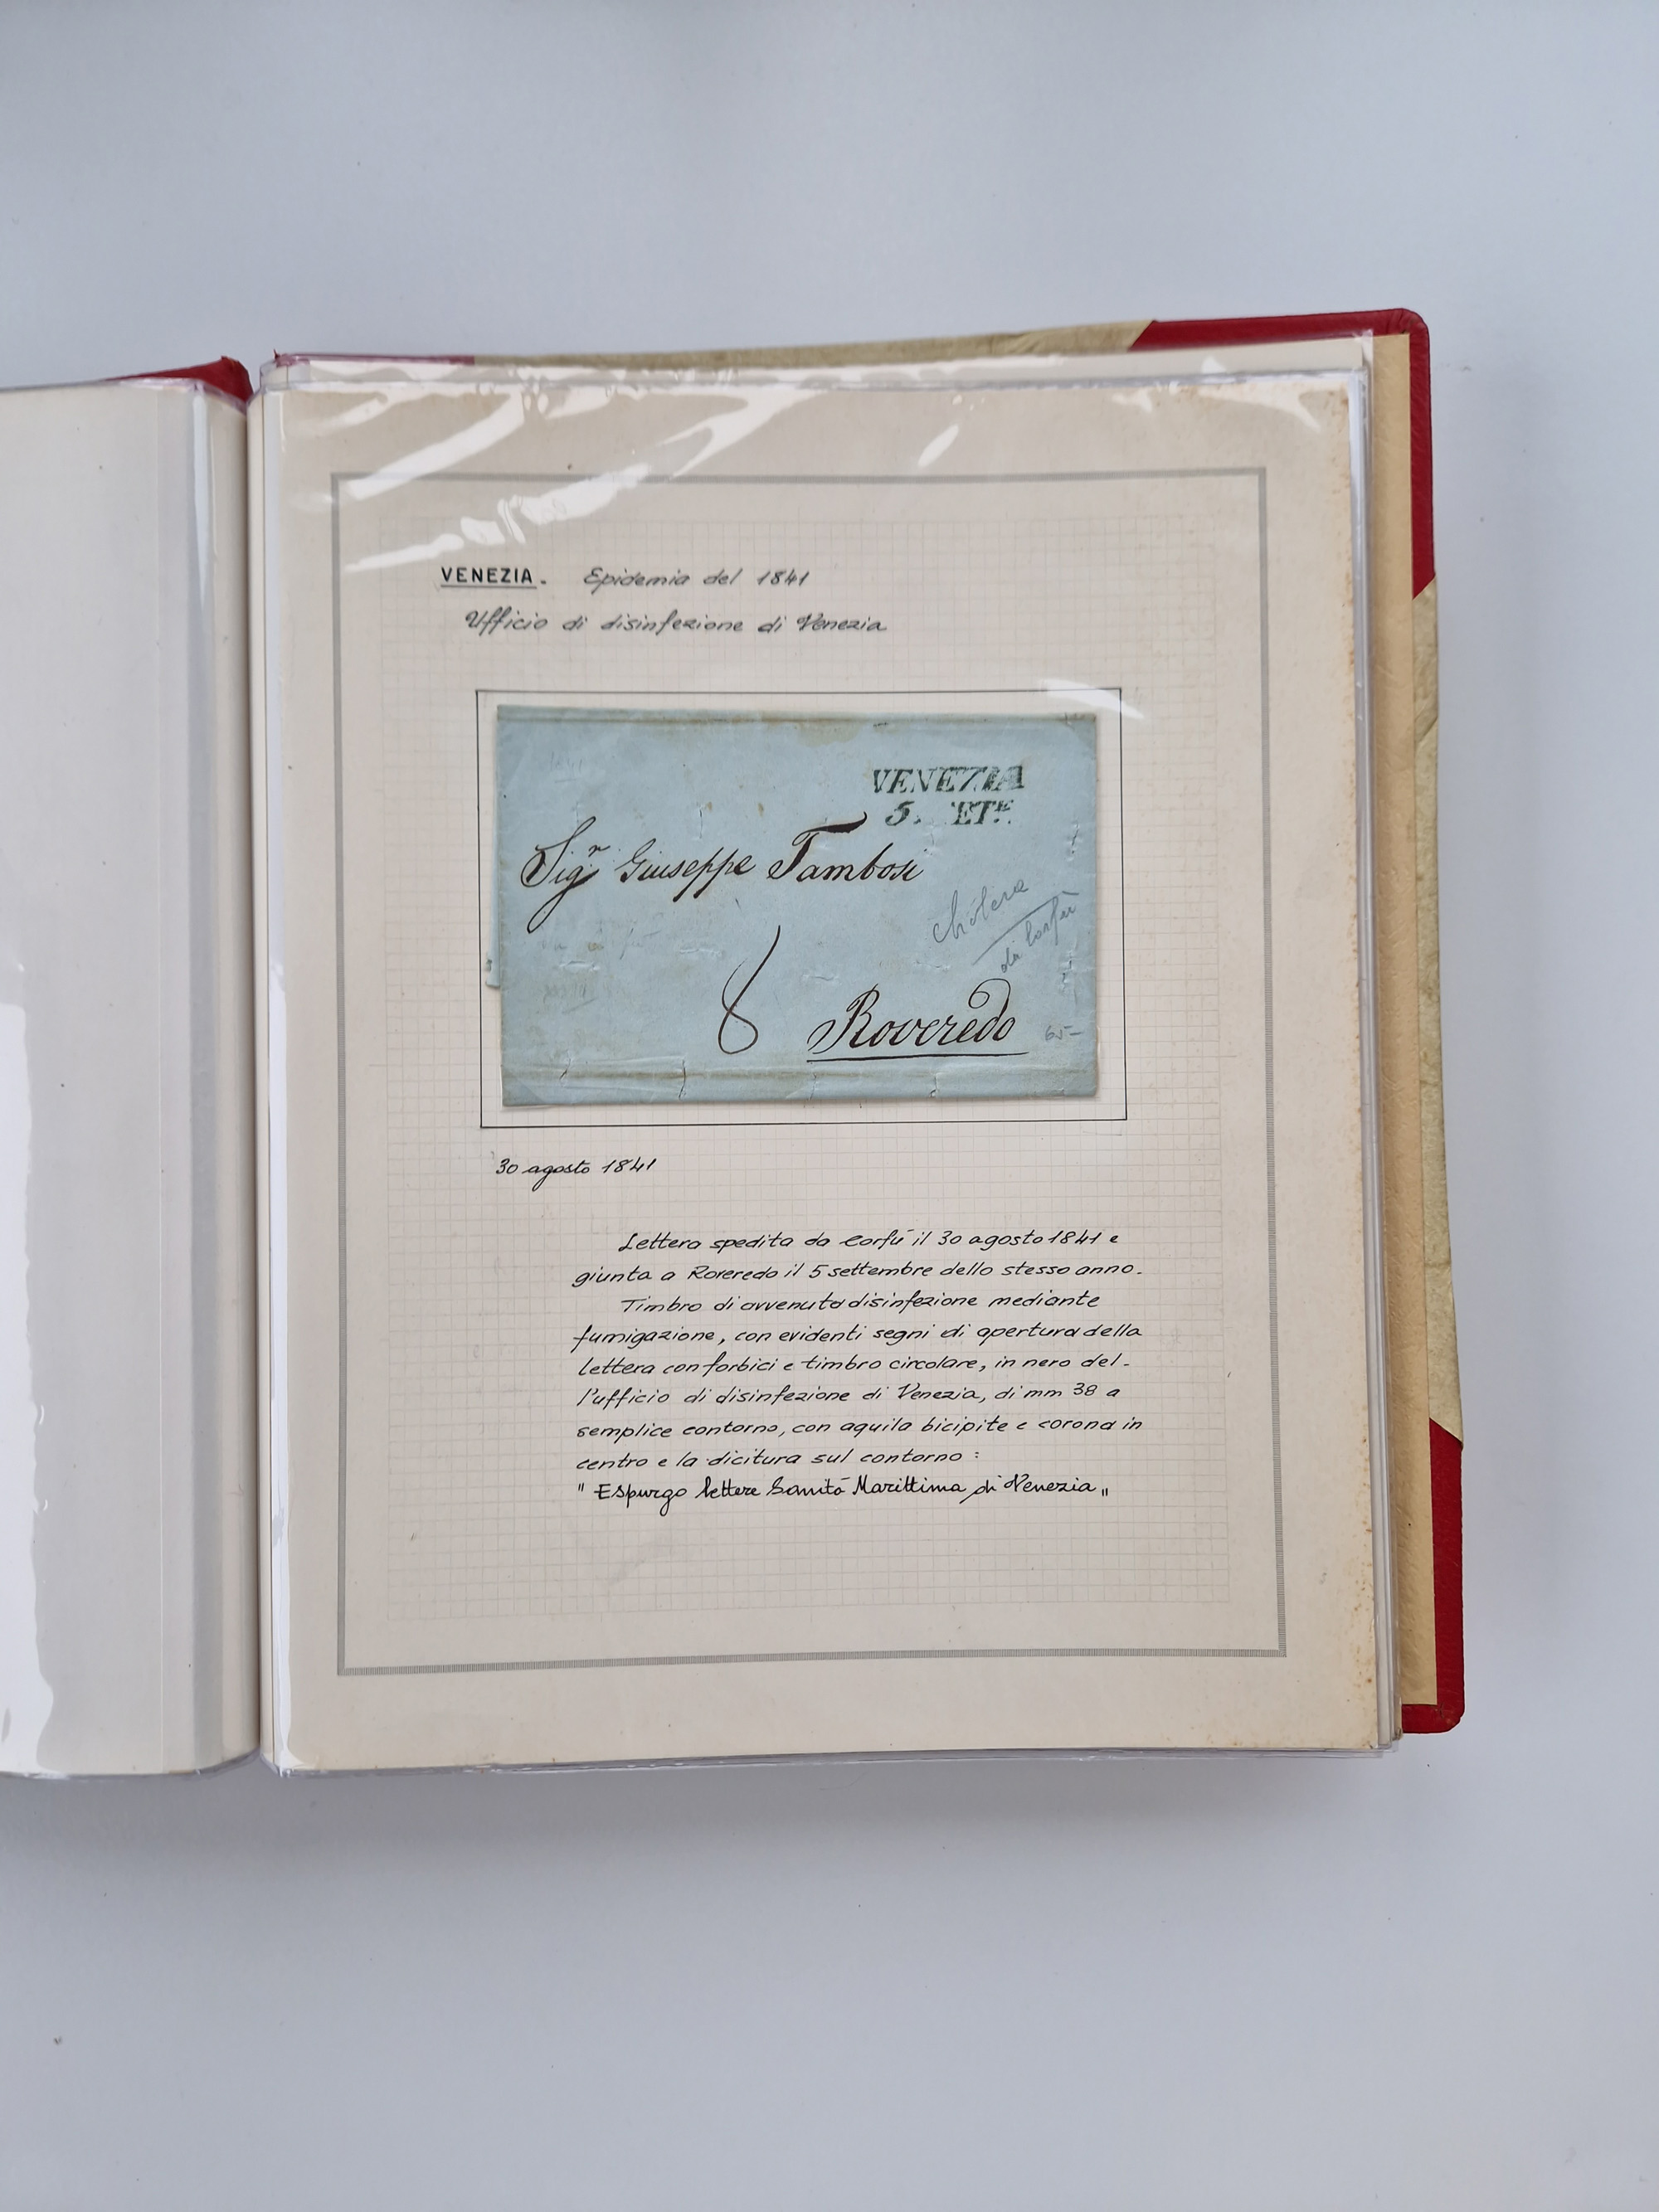 VENEZIA. Epidemia del 1841
Ufficio di disinfezione di Venezia
VENEZIA
5. ET.E
Sig.r Giuseppe Tambosi
Cholera
da Corfù
8 Roveredo
65-
30 agosto 1841
Lettera spedita da Corfù il 30 agosto 1841 e
giunta a Roveredo il 5 settembre dello stesso anno.
Timbro di avvenuta disinfezione mediante
fumigazione, con evidenti segni di apertura della
lettera con forbici e timbro circolare, in nero del-
l'ufficio di disinfezione di Venezia, di mm 38 a
semplice contorno, con aquila bicipite e corona in
centro e la dicitura sul contorno :
" Espurgo lettere Sanità Marittima di Venezia "